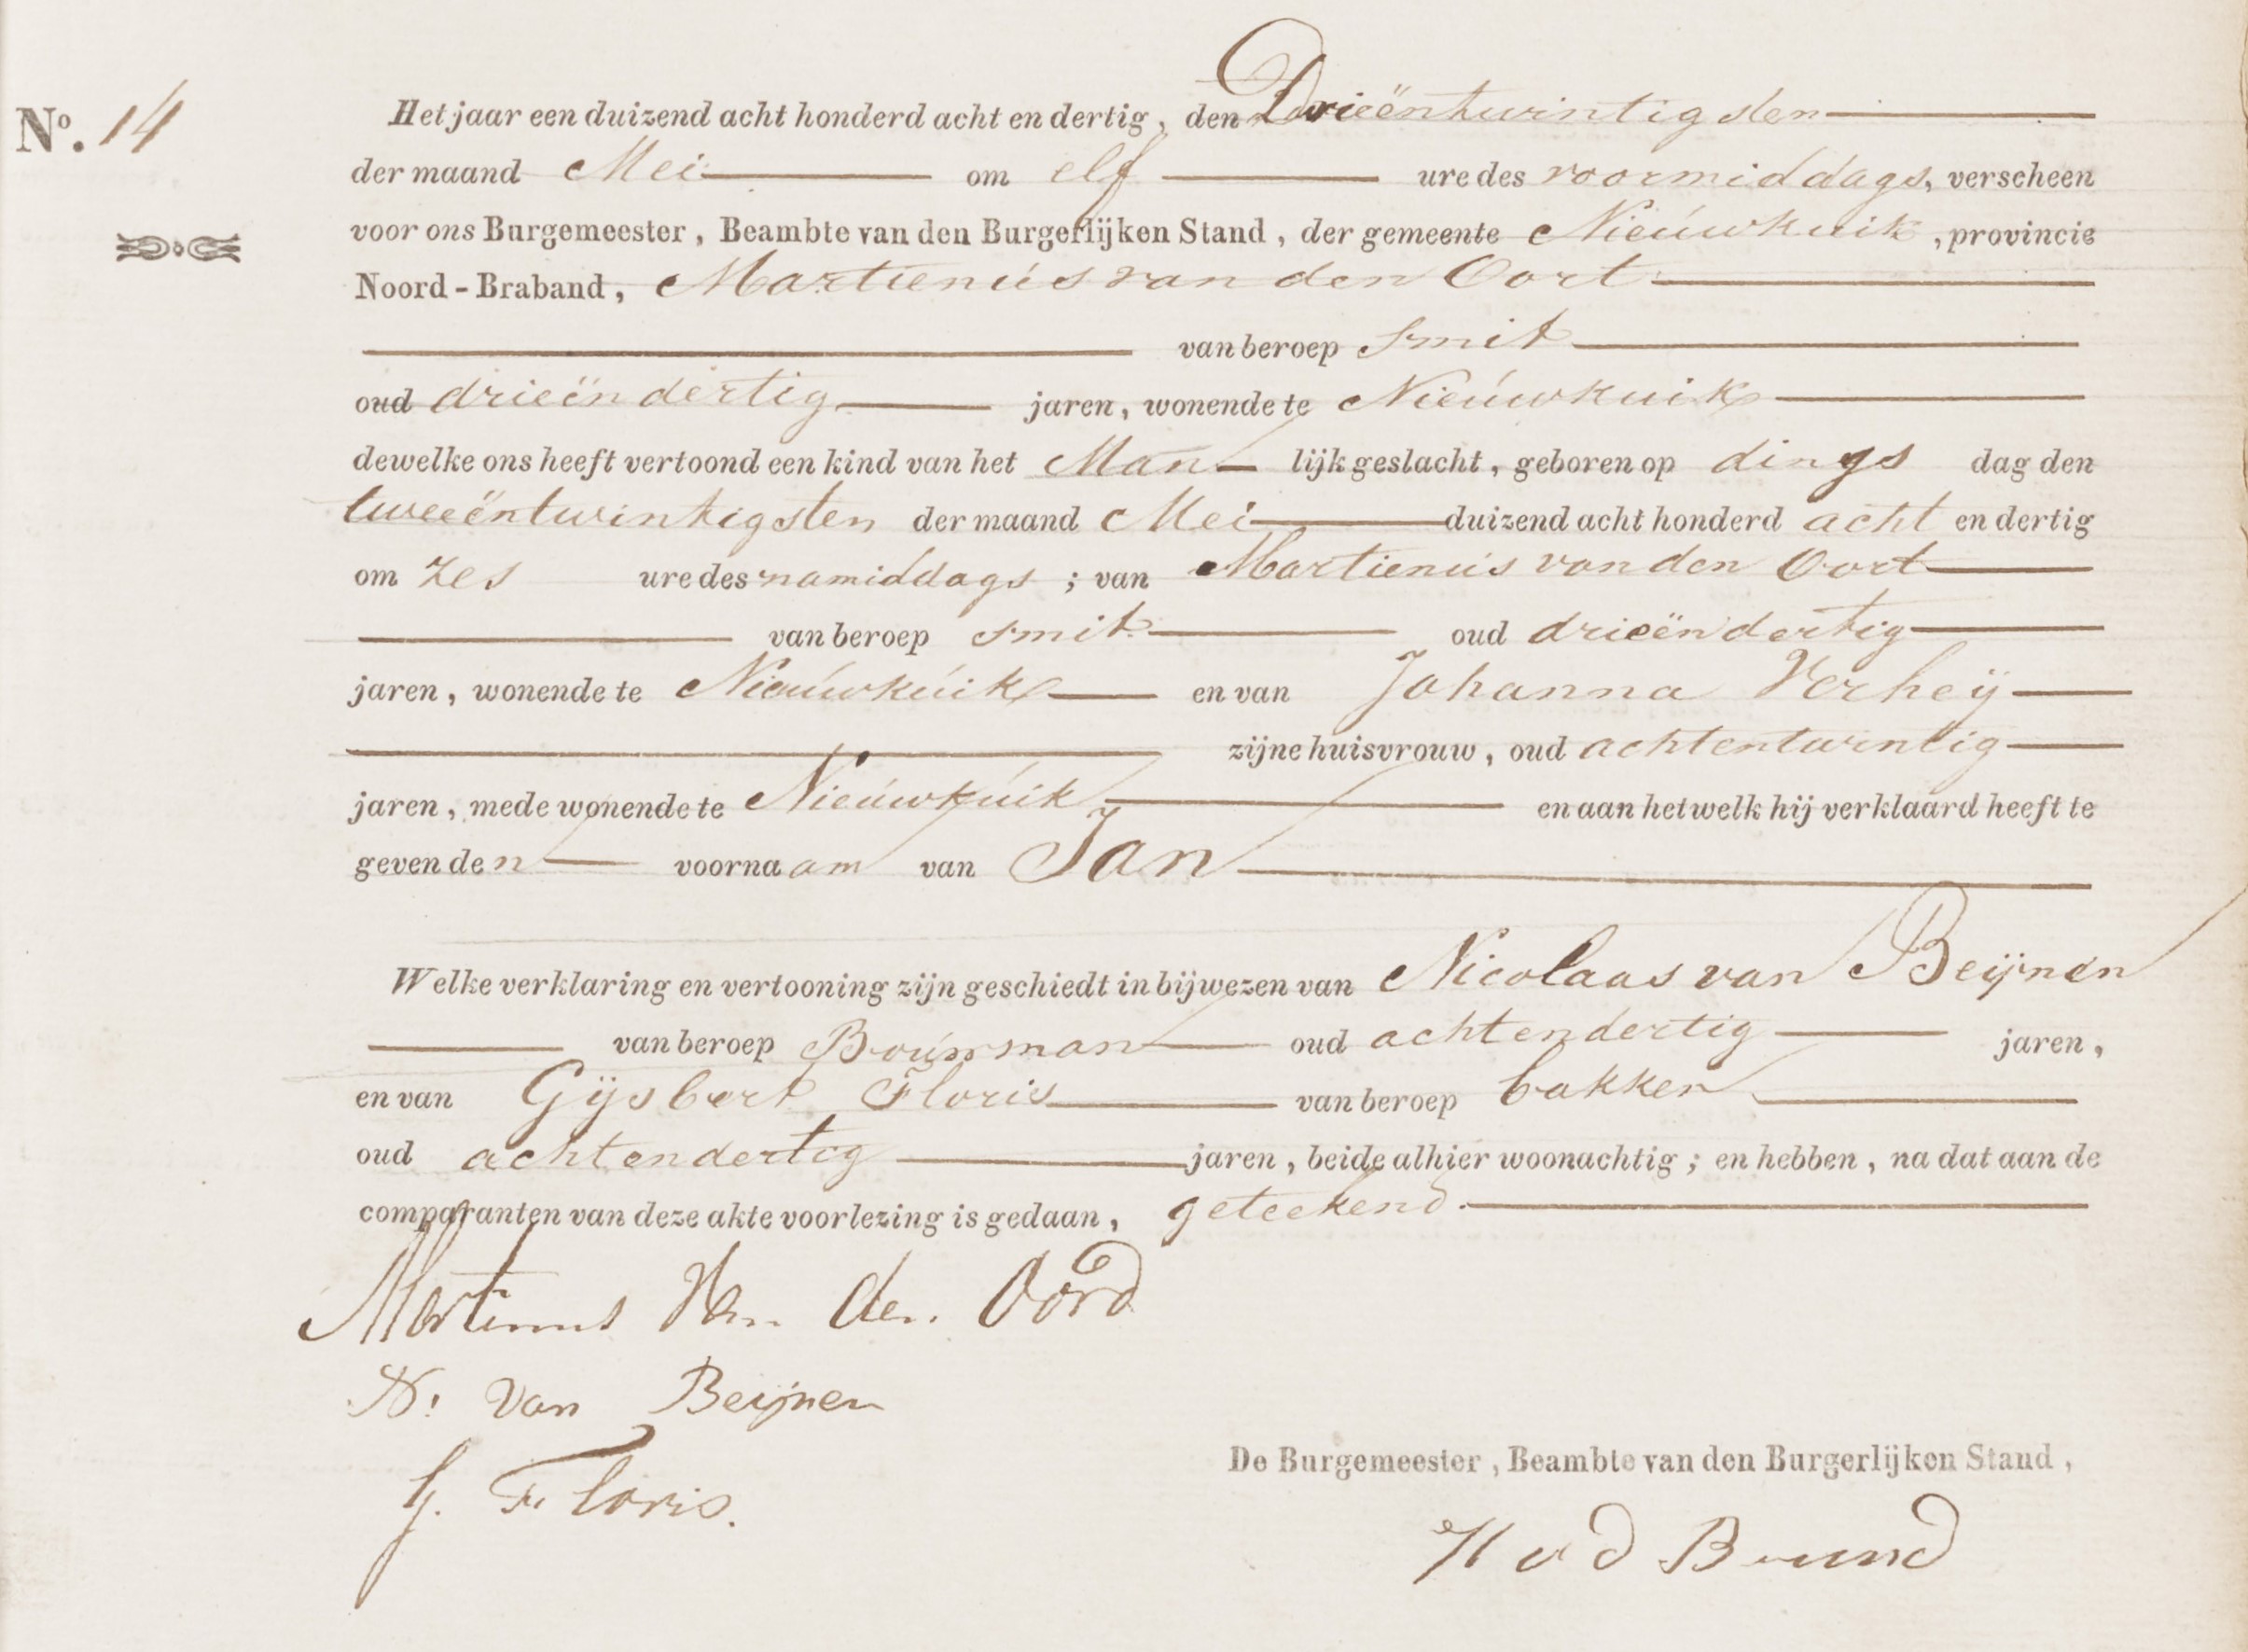 Nº. 14
Het jaar een duizend acht honderd acht en dertig, den Drieëntwintigsten
der maand Mei om elf ure des voormiddags, verscheen
voor ons Burgemeester, Beambte van den Burgerlijken Stand, der gemeente Nieúwkuik, provincie
Noord-Braband, Martienús van den Oort
van beroep Smit
oud drieëndertig jaren, wonende te Nieúwkuik
dewelke ons heeft vertoond een kind van het Man lijk geslacht, geboren op dings dag den
tweeëntwintigsten der maand Mei duizend acht honderd acht en dertig
om zes ure des namiddags; van Martienús van den Oort
van beroep Smit oud drieëndertig
jaren, wonende te Nieúwkúik en van Johanna Verheij
zijne huisvrouw, oud achtentwintig
jaren, mede wonende te Nieúwkúik en aan hetwelk hij verklaard heeft te
geven den voornaam van Jan
Welke verklaring en vertooning zijn geschiedt in bijwezen van Nicolaas van Beijnen
van beroep Boúwman oud achtendertig jaren,
en van Gijsbert Floris van beroep bakker
oud achtendertig jaren, beide alhier woonachtig; en hebben, na dat aan de
comparanten van deze akte voorlezing is gedaan, geteekend.
Martinus Van den Oord
N. van Beijnen
G. Floris.
De Burgemeester, Beambte van den Burgerlijken Stand,
H v d